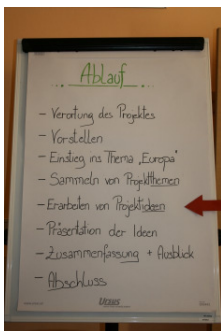 Ablauf
- Verortung des Projektes
- Vorstellen
- Einstieg ins Thema „Europa"
- Sammeln von Projektthemen
- Erarbeiten von Projektideen
- Präsentation der Ideen
- Zusammenfassung + Ausblick
- Abschluss